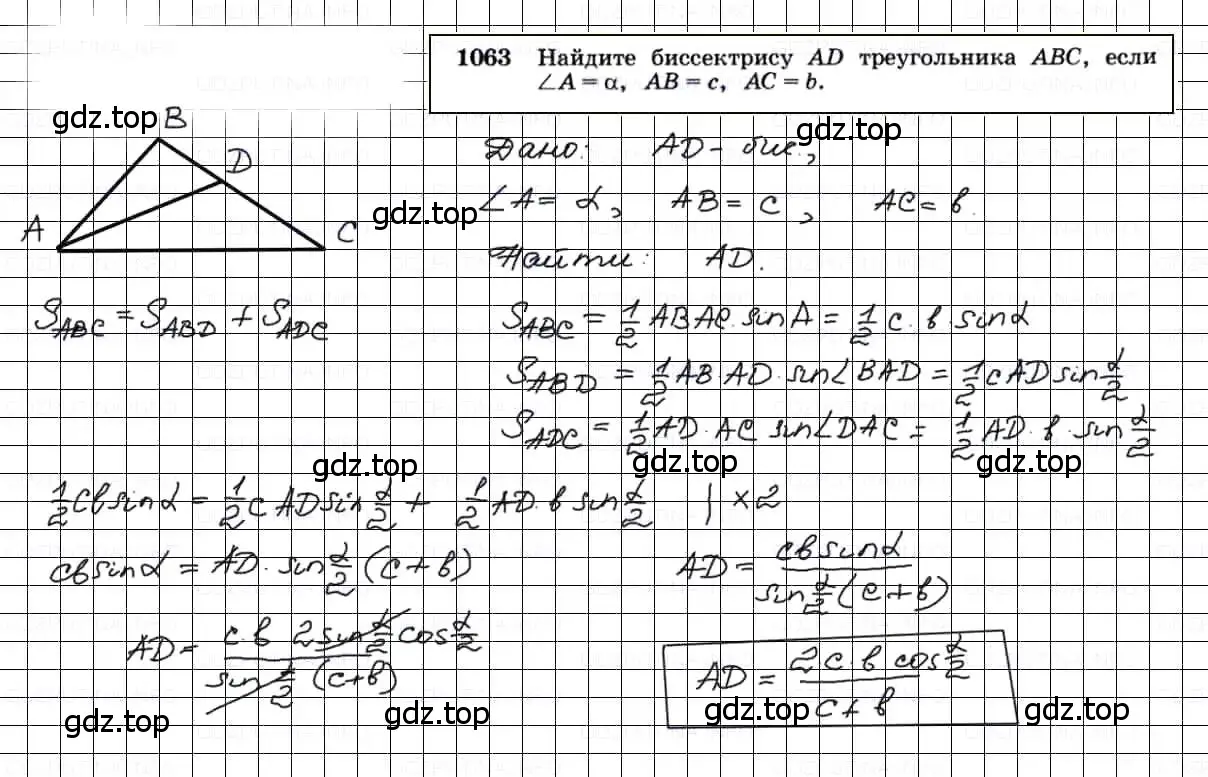 1063 Найдите биссектрису AD треугольника ABC, если
∠A = α, AB = c, AC = b.
gdz.top
B
gdz.top
D
Дано: AD - бис.,
A
C
gdz.top
∠A = α, AB = c, AC = b.
Найти: AD.
S_ABC = S_ABD + S_ADC
S_ABC = 1/2 AB·AC·sin A = 1/2 c·b·sin α
S_ABD = 1/2 AB·AD·sin∠BAD = 1/2 c AD sin α/2
S_ADC = 1/2 AD·AC sin∠DAC = 1/2 AD·b·sin α/2
gdz.top gdz.top gdz.top
1/2 cb sin α = 1/2 c AD sin α/2 + 1/2 AD·b sin α/2 | × 2
cb sin α = AD·sin α/2 (c + b)
AD = cb sin α / sin α/2 (c + b)
AD = c·b 2 sin α/2 cos α/2 / sin α/2 (c + b)
AD = 2 c·b cos α/2 / c + b
gdz.top gdz.top gdz.top gdz.top